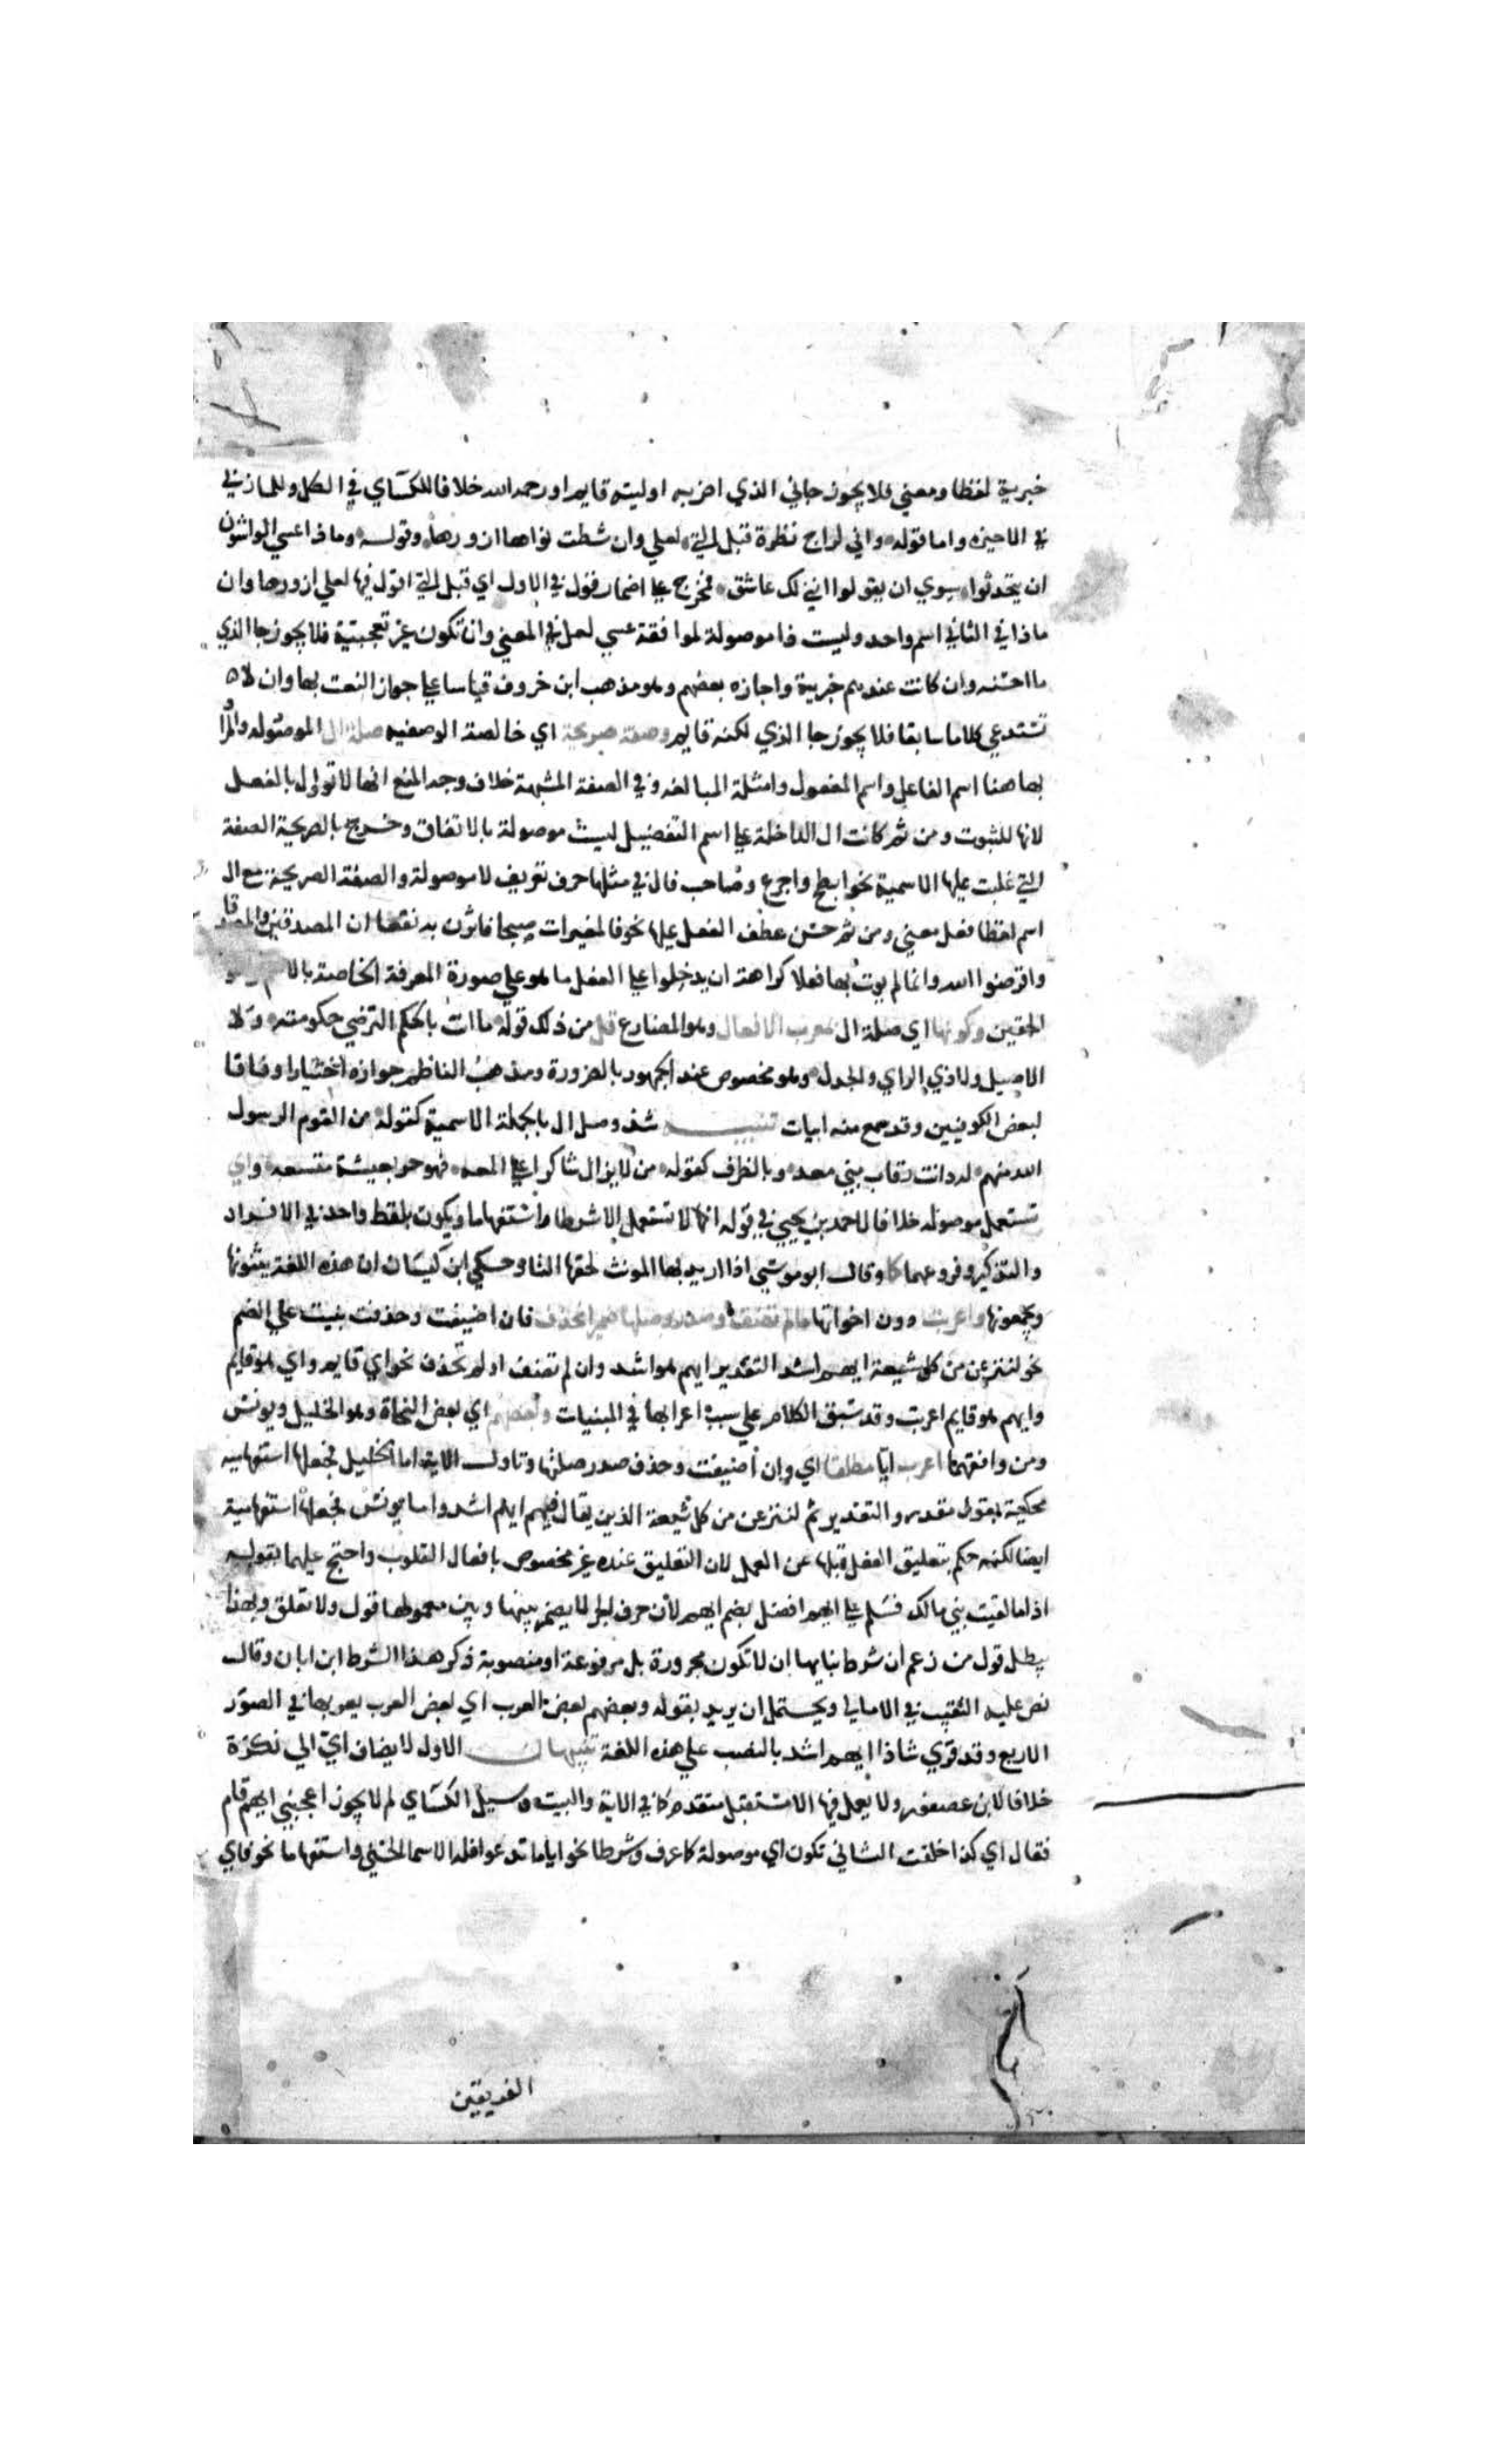 خبرية لفظا ومعني فلا يجوز جاني الذي اضربه او ليته قايم او رحمه الله خلافا للكساي في الكل وللمازني
في الاخيرة واما قوله واني لراج نظرة قبل التي لعلي وان شطت نواها ازورها وقوله وماذا عسي الواشون
ان يتحدثوا سوي ان يقولوا انني لك عاشق فمخرج علي اضمار قول في الاول اي قبل التي اقول فيها لعلي ازورها وان
ماذا في الثاني اسم واحد وليست ذا موصولة لموافقة عسي لعل في المعني وان تكون غير تعجبية فلا يجوز جا الذي
ما احسنه وان كانت عندهم خبرية واجازه بعضهم وهو مذهب ابن خروف قياسا علي جواز النعت بها وان لا
تستدعي كلاما سابقا فلا يجوز جا الذي لكنه قايم وصفة صريحة اي خالصة الوصفيه صلة ال الموصوله والمراد
بها هنا اسم الفاعل واسم المفعول وامثلة المبالغه وفي الصفة المشبهة خلاف وجه المنع انها لا تؤول بالفعل
لانها للثبوت ومن ثم كانت ال الداخلة علي اسم التفضيل ليست موصولة بالاتفاق وخرج بالصريحة الصفة
التي غلبت عليها الاسمية نحو ابطح واجرع وصاحب فال في مثلها حرف تعريف لا موصولة والصفة الصريحة مع ال
اسم لفظا فعل معني ومن ثم حسن عطف الفعل عليها نحو فالمغيرات صبحا فاثرن به نقعا ان المصدقين والمصدقات
واقرضوا الله وانما لم يوت بها فعلا كراهة ان يدخلوا علي الفعل ما هو علي صورة المعرفة الخاصة بالاسم
وكونها اي صلة ال بمعرب الافعال وهو المضارع قل من ذلك قوله ما انت بالحكم الترضي حكومته ولا
الاصيل ولا ذي الراي والجدل وهو مخصوص عند الجمهور بالضرورة ومذهب الناظم جوازه اختيارا وفاقا
لبعض الكوفيين وقد سمع منه ابيات تنبيـــه شذ وصل ال بالجملة الاسمية كقوله من القوم الرسول
الله منهم لهم دانت رقاب بني معد وبالظرف كقوله من لا يزال شاكرا علي المعه فهو حر بعيشة متسعه واي
تستعمل موصوله خلافا لاحمد بن يحيي في قوله انها لا تستعمل الا شرطا واستفهاما ويكون بلفظ واحد في الافراد
والتذكير وفروعهما كما وقال ابو موسي اذا اريد بها المونث لحقها التا وحكي ابن كيسان ان هذه اللغة يثنونها
ويجمعونها واعربت دون اخواتها ما لم تضف وصدر وصلها ضمير انحذف فان اضيفت وحذفت بنيت علي الضم
نحو لننزعن من كل شيعة ايهم اشد التقدير ايهم هو اشد وان لم تضف او لم تحذف نحو اي قايم واي هو قايم
وايهم هو قايم اعربت وقد سبق الكلام علي سبب اعرابها في المبنيات وبعضهم اي بعض النحاة وهو الخليل ويونس
ومن وافقهما اعرب ايا مطلقا اي وان اضيفت وحذف صدر صلتها وتاول الاية اما الخليل فجعلها استفهاميه
محكية بقول مقدر والتقدير ثم لننزعن من كل شيعة الذين يقال فيهم ايهم اشد واما يونس فجعلها استفهامية
ايضا لكنه حكم بتعليق الفعل قبلها عن العمل لان التعليق عنده غير مخصوص بافعال القلوب واحتج عليهما بقوله
اذا ما لقيت بني مالك فسلم علي ايهم افضل بضم ايهم لان حرف الجر لا يضمر بينها وبين معمولها قول ولا تعلق وبهذا
يبطل قول من زعم ان شرط بنايها ان لا تكون مجرورة بل مرفوعة او منصوبة ذكر هذا الشرط ابن ايان وقال
نص عليه النقيب في الامالي ويحتمل ان يريد بقوله وبعضهم بعض العرب اي بعض العرب يعربها في الصور
الاربع وقد قري شاذا ايهم اشد بالنصب علي هذه اللغة تنبيهان الاول لا يضاف اي الي نكرة
خلافا لابن عصفور ولا يعمل فيها الا مستقبل متقدم كما في الاية والبيت وسيل الكساي لم لا يجوز اعجبني ايهم قام
فقال اي كذا خلقت الثاني تكون اي موصولة كما عرف وشرطا نحو ايا ما تدعوا فله الاسما الحسني واستفهاما نحو فاي
الفريقين